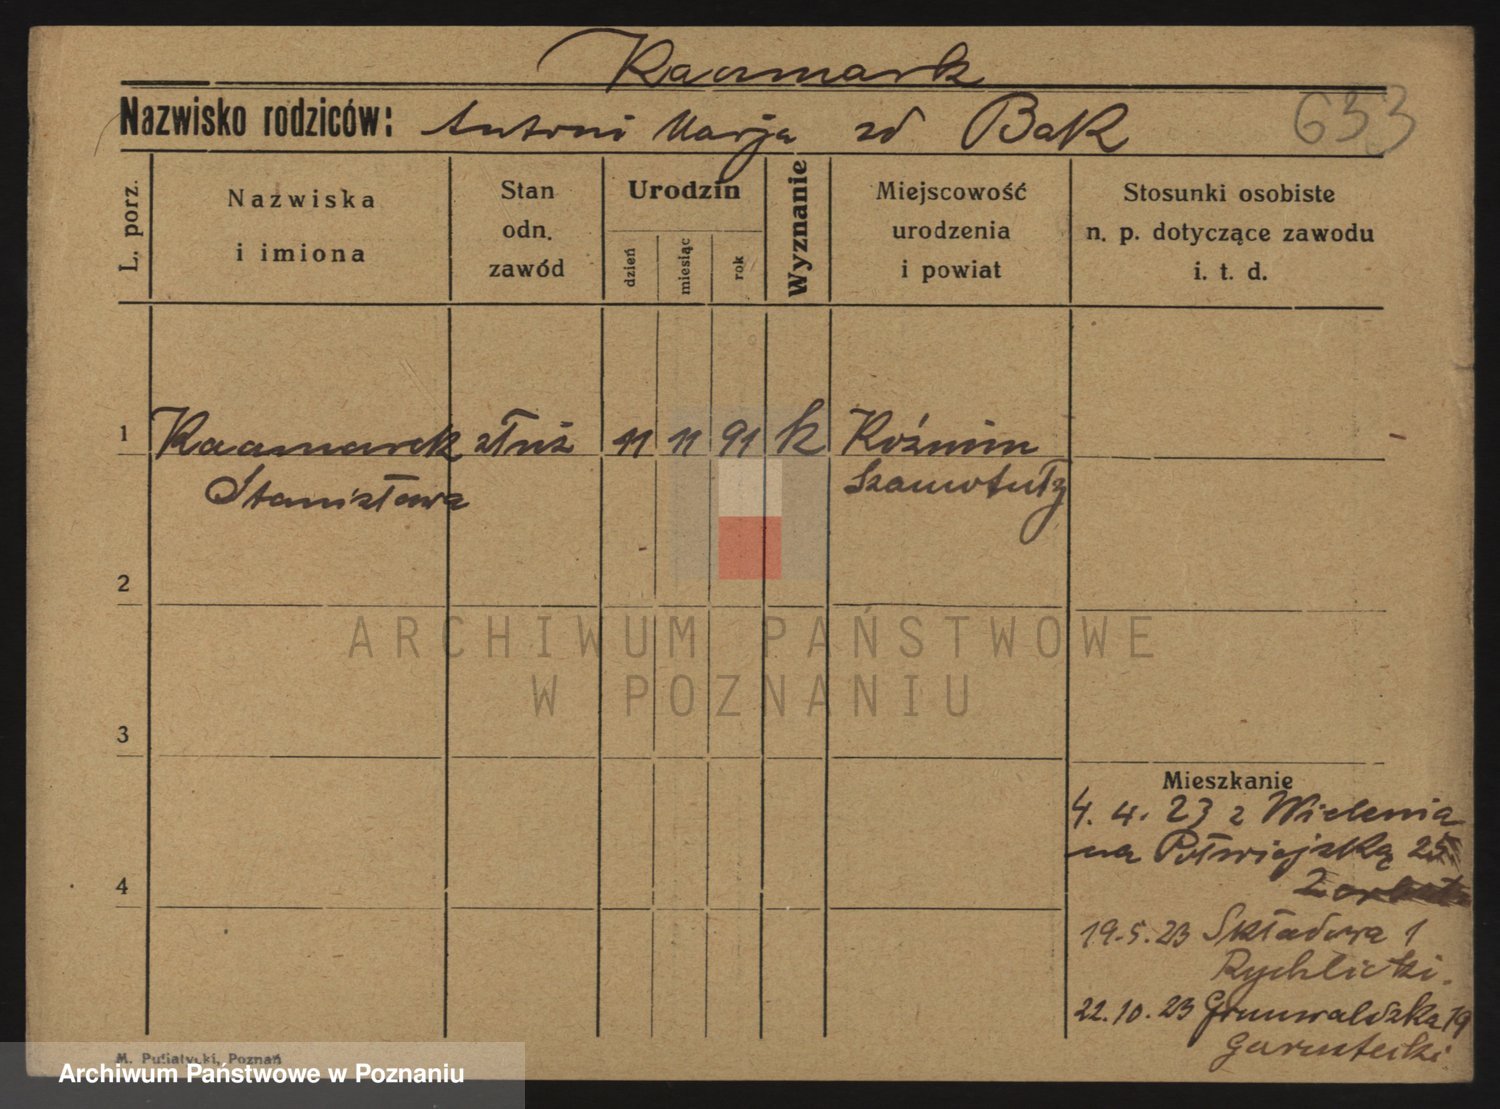 Kaczmarek
Nazwisko rodziców: Antoni Marja zd Bak
633
L. porz.
Nazwiska
i imiona
Stan
odn.
zawód
Urodzin
dzień
miesiąc
rok
Wyznanie
Miejscowość
urodzenia
i powiat
Stosunki osobiste
n. p. dotyczące zawodu
i. t. d.
1 Kaczmarek służ 11 11 91 k Koźmin
Stanisława Szamotuły
2
ARCHIWUM PAŃSTWOWE
W POZNANIU
3
Mieszkanie
4. 4. 23 z Wielenia
na Półwiejską 25
4
19.5.23 Składowa 1
Rychlicki.
22.10.23 Grunwaldzka 19
M. Putiatycki, Poznań
Archiwum Państwowe w Poznaniu